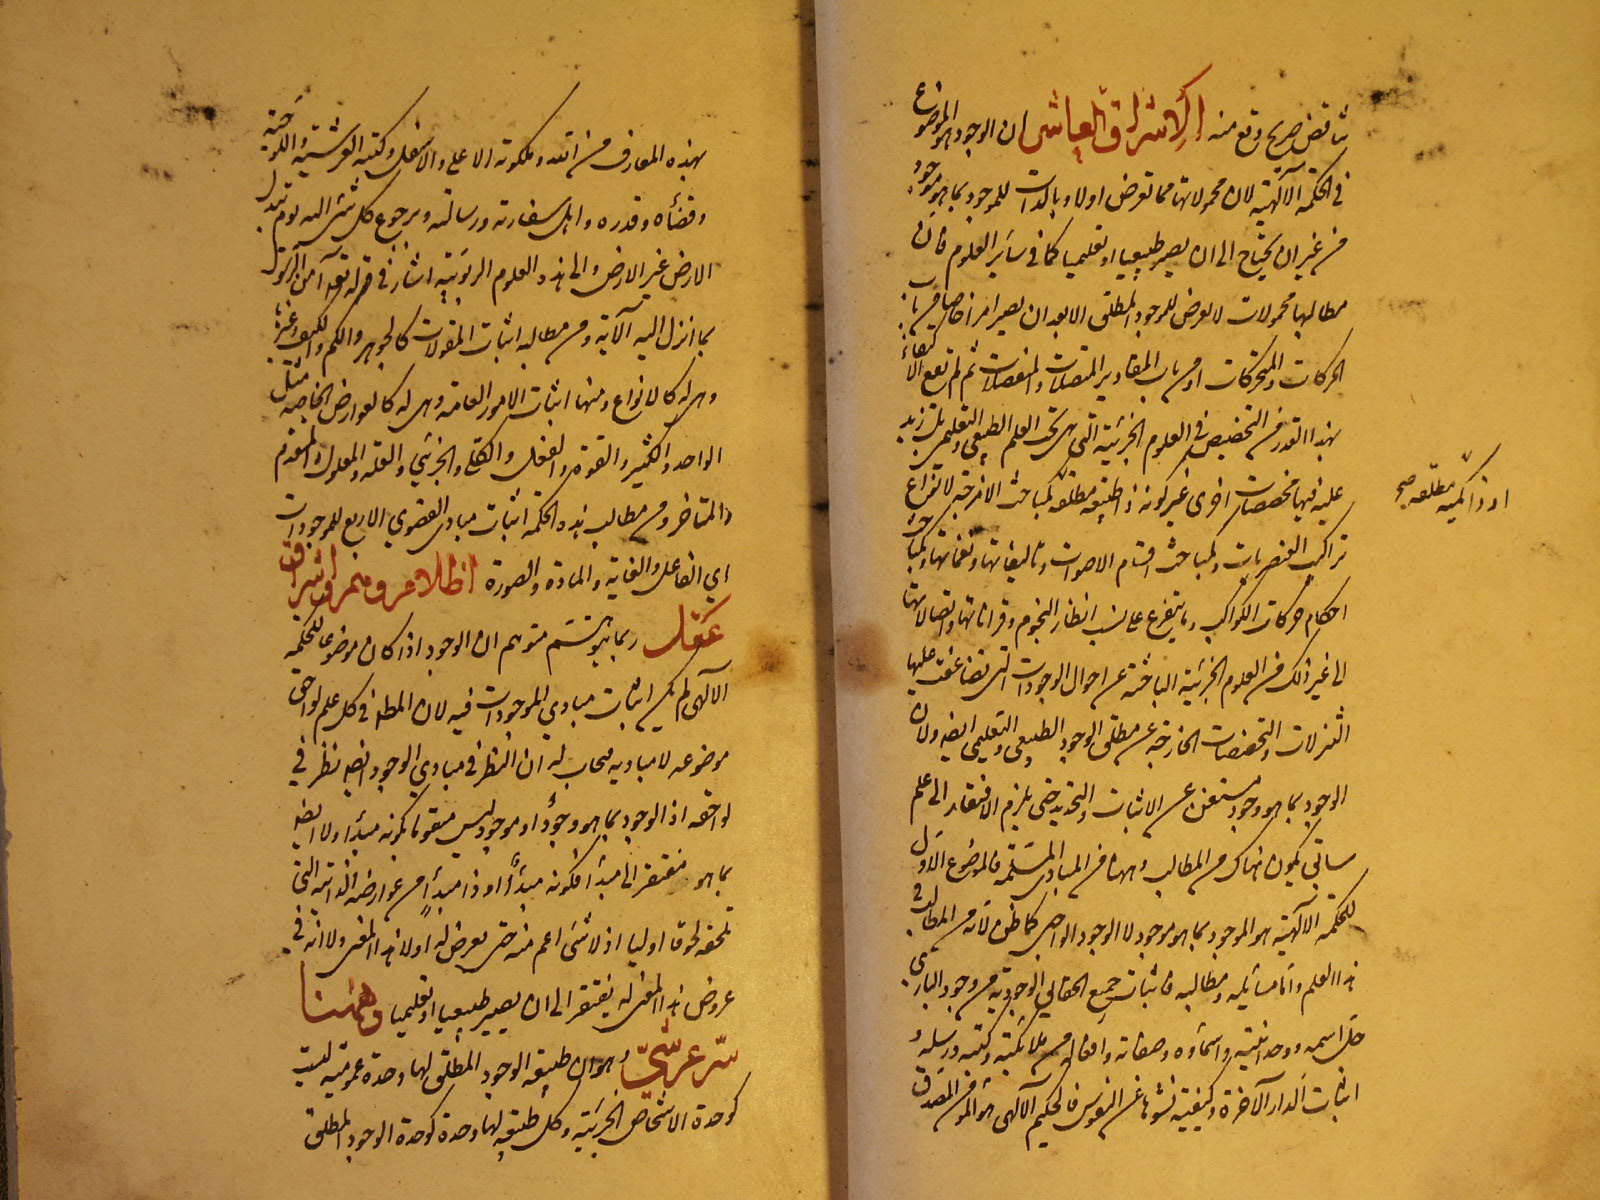 تناقض صريح وقع منه الاشراق العاشر ان الوجود هو الموضوع
في الحكمة الآلهية لان محمولاتها مما تعرض اولا وبالذات للموجود بما هو موجود
من غير ان يحتاج الى ان يصير طبيعيا او تعليميا كما في سائر العلوم فان
مطالبها محمولات لا تعرض للموجود المطلق الا بعد ان يصير امرا خاصا من باب
الحركات والمتحركات او من باب المقادير المتصلات والمنفصلات ثم لم تقع الاكتفاء
بهذا القدر من التخصيص في العلوم الجزئية التي هي تحت العلم الطبيعي والتعليمي بل زيد
عليه فيها مخصصات اخرى غير كونه ذا طبيعة مطلقة كمباحث الامزجة لانواع
او ذا كمية مطلقة صح
تراكيب العنصريات وكمباحث اقسام الاصوات وتاليفاتها ونغماتها وكمباحث
احكام حركات الكواكب وما يتفرع على نسب انظار النجوم وقراناتها واتصالاتها
الى غير ذلك من العلوم الجزئية الباحثة عن احوال الوجودات التي تضاعفت عليها
التنزلات والتخصصات الخارجة عن مطلق الوجود الطبيعي والتعليمي ايضا ولان
الوجود بما هو وجود مستغن عن الاثبات والتحديد حتى يلزم الافتقار الى علم
سابق يكون هناك من المطالب وههنا من المبادى المسلمة فالموضوع الاول
للحكمة الالهية هو الموجود بما هو موجود لا الوجود الواجبي كما ظن لانه من المطالب في
هذا العلم واما مسائله ومطالبه فاثبات جميع الحقايق الوجودية من وجود البارى
جل اسمه ووحدانيته واسمآؤه وصفاته وافعاله من ملائكته وكتبه ورسله و
اثبات الدار الآخرة وكيفية نشوها عن النفوس فالحكيم الآلهى هو المؤمن المصدق
بهذه المعارف من الله وملكوته الاعلى والاسفل وكتبه العرشية واللوحية
وقضآه وقدره واهل سفارته ورسالته وبرجوع كل شئ اليه يوم تبدل
الارض غير الارض والى هذه العلوم الربوبية اشار في قوله تعه آمن الرسول
بما انزل اليه الآية ومن مطالبه اثبات المقولات كالجوهر والكم والكيف وغيرها
وهى له كالانواع ومنها اثبات الامور العامة وهى له كالعوارض الخاصة مثل
الواحد والكثير والقوة والفعل والكلي والجزئي والعلة والمعلول والمتقدم
والمتاخر ومن مطالب هذه الحكمة اثبات مبادى القصوي الاربع للموجودات
اي الفاعل والغاية والمادة والصورة اظلام وهمى واشراق
عقلى ربما يتوهم متوهم ان الوجود اذا كان موضوعا للحكمة
الآلهى لم يكن اثبات مبادي للموجودات فيه لان المطه في كل علم لواحق
موضوعه لا مباديه فيجاب له ان النظر في مبادي الوجود ايضا نظر في
لواحقه اذ الوجود بما هو وجود او موجود ليس متقوما بكونه مبدأ ولا ايضا
بما هو مفتقر الى مبدأ فكونه مبدأ او ذا مبدأ من عوارضه الذاتية التي
تلحقه لحوقا اوليا اذ لا شئ اعم منه حتى يعرض له اولا هذا المعنى ولا انه في
عروض هذا المعنى له يفتقر الى ان يصير طبيعيا او تعليميا وههنا
سر عرشيّ وهو ان طبيعة الوجود المطلق لها وحدة عمومية ليست
كوحدة الاشخاص الجزئية وكل طبيعة لها وحدة كوحدة الوجود المطلق